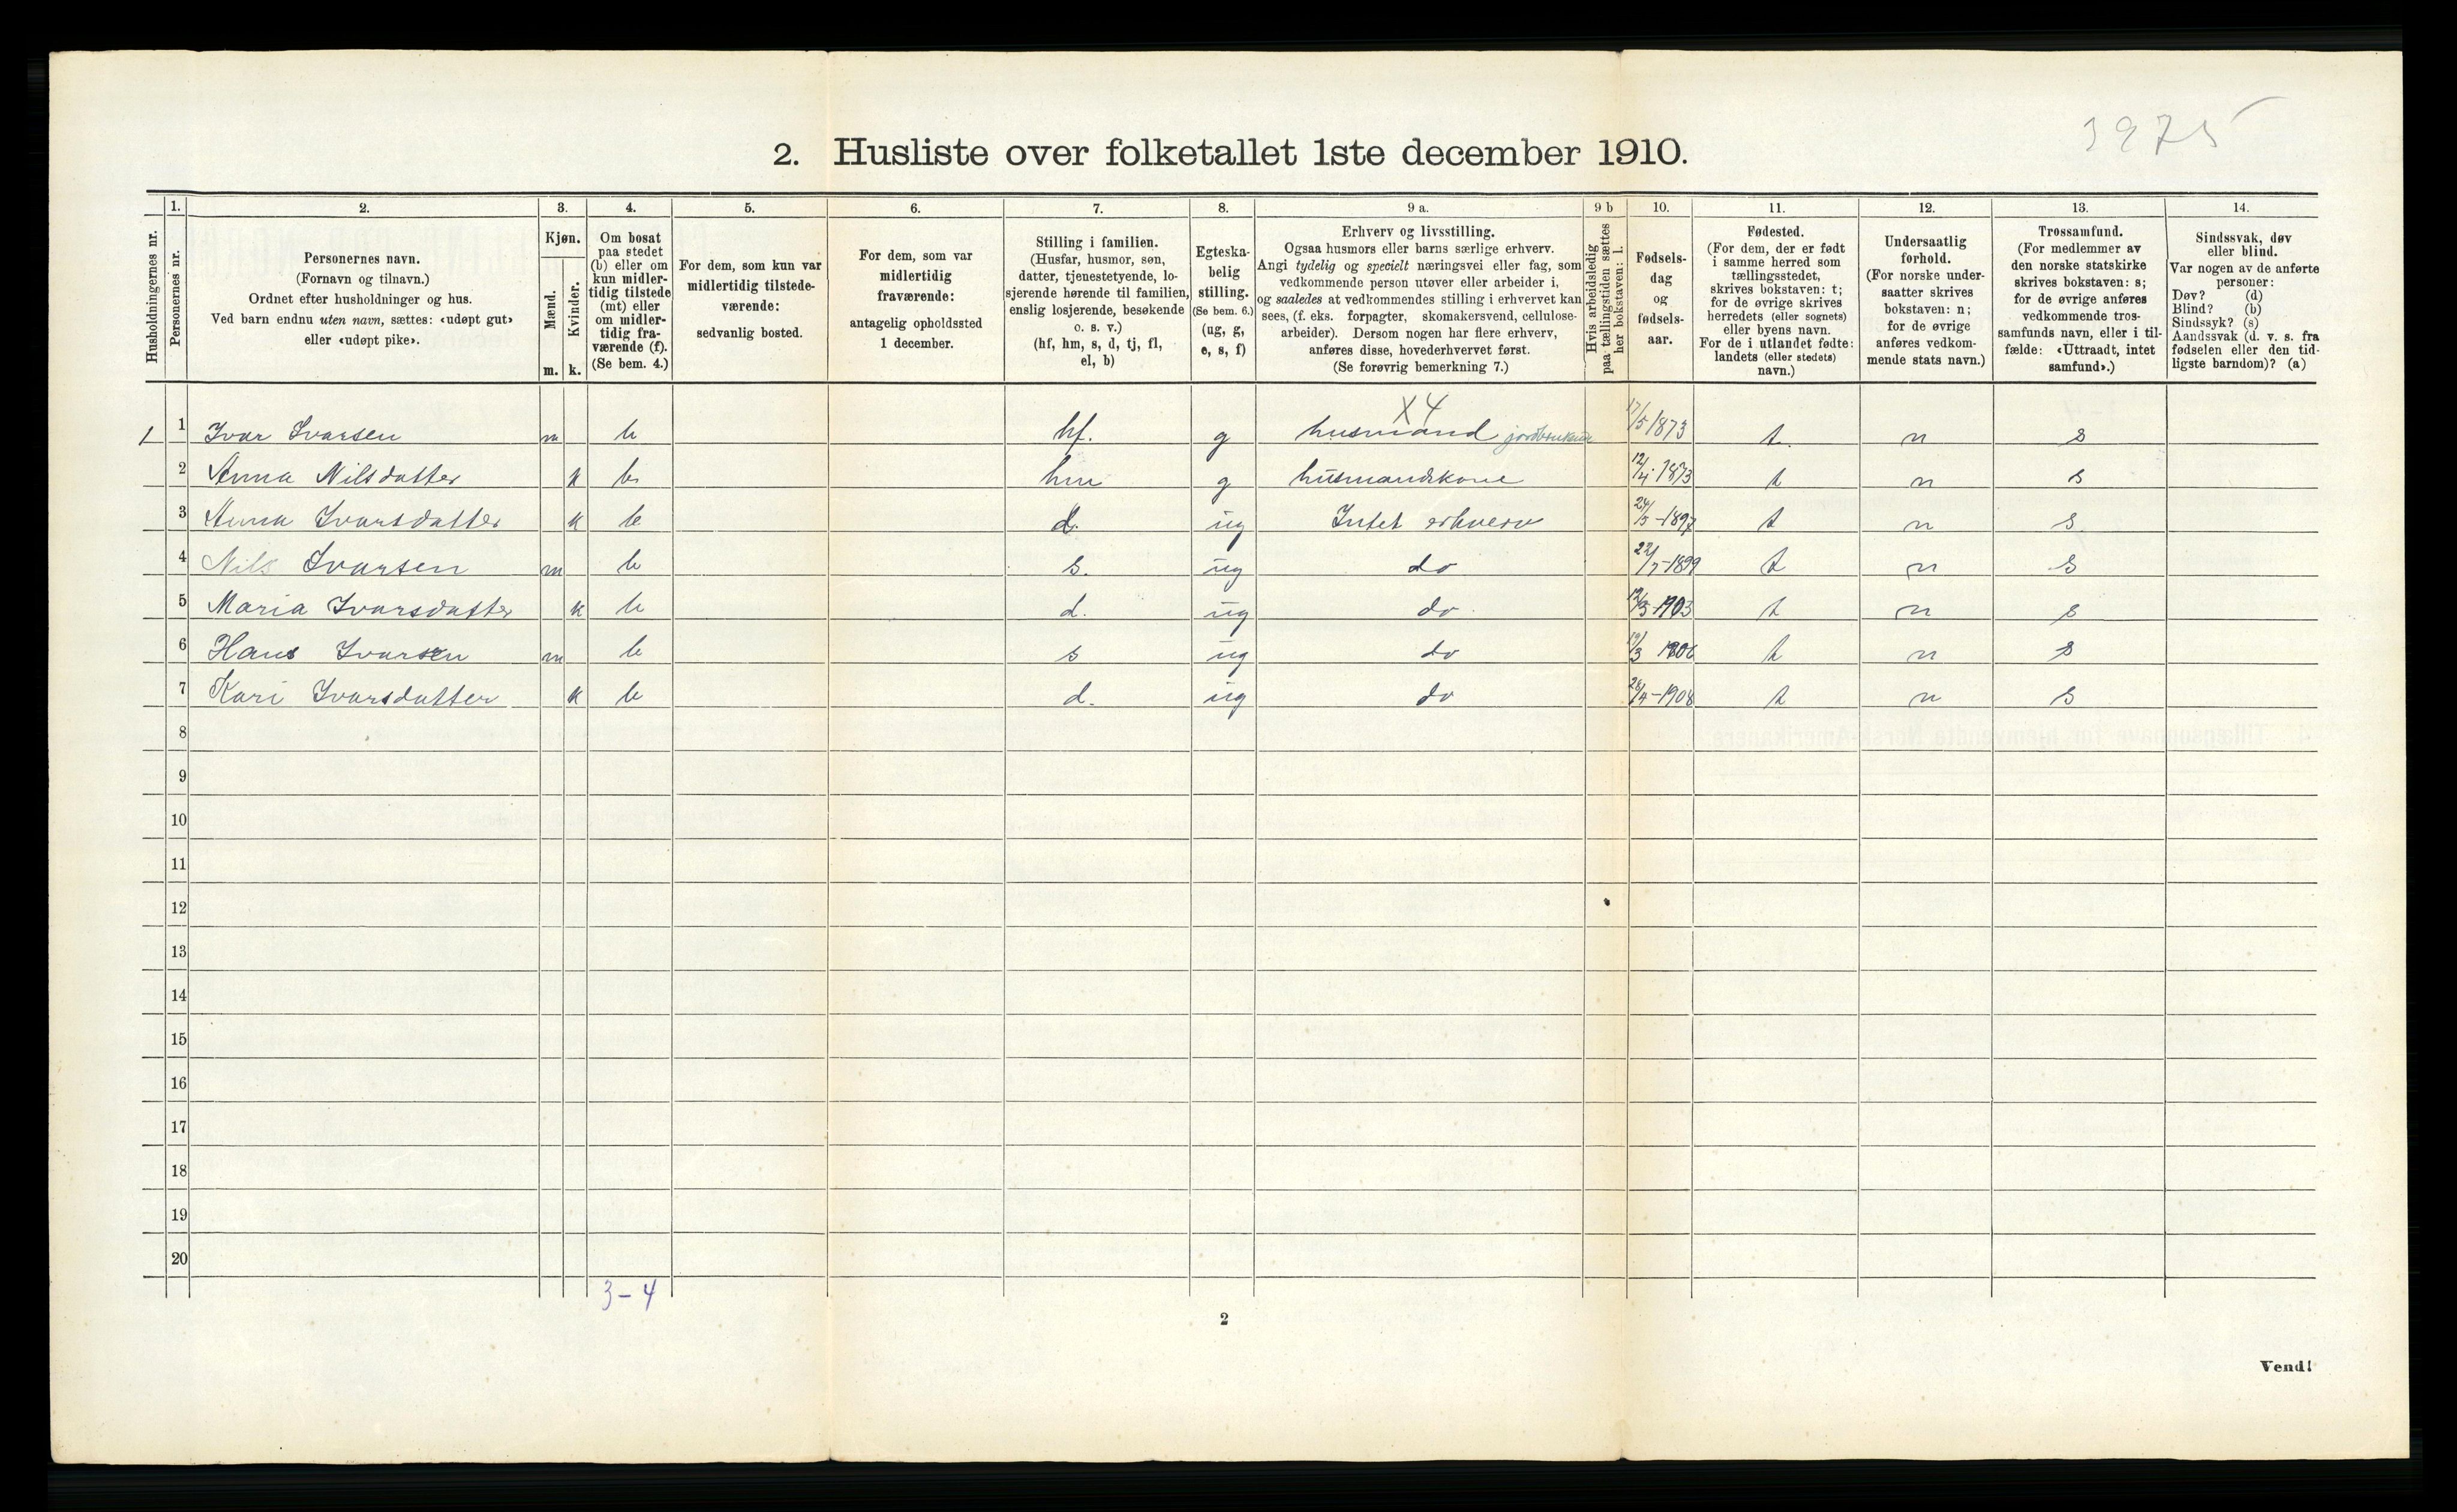 3975
2. Husliste over folketallet 1ste december 1910.
1. 2. 3. 4. 5. 6. 7. 8. 9 a. 9 b 10. 11. 12. 13. 14.
Husholdningernes nr.
Personernes nr.
Personernes navn.
(Fornavn og tilnavn.)
Ordnet efter husholdninger og hus.
Ved barn endnu uten navn, sættes: «udøpt gut»
eller «udøpt pike».
Kjøn.
Mænd.
Kvinder.
m. k.
Om bosat
paa stedet
(b) eller om
kun midler-
tidig tilstede
(mt) eller
om midler-
tidig fra-
værende (f).
(Se bem. 4.)
For dem, som kun var
midlertidig tilstede-
værende:
sedvanlig bosted.
For dem, som var
midlertidig
fraværende:
antagelig opholdssted
1 december.
Stilling i familien.
(Husfar, husmor, søn,
datter, tjenestetyende, lo-
sjerende hørende til familien,
enslig losjerende, besøkende
o. s. v.)
(hf, hm, s, d, tj, fl,
el, b)
Egteska-
belig
stilling.
(Se bem. 6.)
(ug, g,
e, s, f)
Erhverv og livsstilling.
Ogsaa husmors eller barns særlige erhverv.
Angi tydelig og specielt næringsvei eller fag, som
vedkommende person utøver eller arbeider i,
og saaledes at vedkommendes stilling i erhvervet kan
sees, (f. eks. forpagter, skomakersvend, cellulose-
arbeider). Dersom nogen har flere erhverv,
anføres disse, hovederhvervet først.
(Se forøvrig bemerkning 7.)
Hvis arbeidsledig
paa tællingstiden sættes
her bokstaven: l.
Fødsels-
dag
og
fødsels-
aar.
Fødested.
(For dem, der er født
i samme herred som
tællingsstedet,
skrives bokstaven: t;
for de øvrige skrives
herredets (eller sognets)
eller byens navn.
For de i utlandet fødte:
landets (eller stedets)
navn.)
Undersaatlig
forhold.
(For norske under-
saatter skrives
bokstaven: n;
for de øvrige
anføres vedkom-
mende stats navn.)
Trossamfund.
(For medlemmer av
den norske statskirke
skrives bokstaven: s;
for de øvrige anføres
vedkommende tros-
samfunds navn, eller i til-
fælde: «Uttraadt, intet
samfund».)
Sindssvak, døv
eller blind.
Var nogen av de anførte
personer:
Døv? (d)
Blind? (b)
Sindssyk? (s)
Aandssvak (d. v. s. fra
fødselen eller den tid-
ligste barndom)? (a)
X4
1 1 Ivar Ivarsen m b hf. g husmand jordbruksar 17/5 1873 t. n s
2 Anna Nilsdatter k b hm g husmandskone 12/4 1873 t n s
3 Anna Ivarsdatter k b d. ug Intet erhverv 24/5-1897 t n s
4 Nils Ivarsen m b s. ug do 22/7-1899 t n s
5 Maria Ivarsdatter k b d. ug do 1903 t n s
6 Hans Ivarsen m b s ug do 19/3 1906 t n s
7 Kari Ivarsdatter k b d. ug do 28/4-1908 t n s
8
9
10
11
12
13
14
15
16
17
18
19
20
3-4
2
Vend!